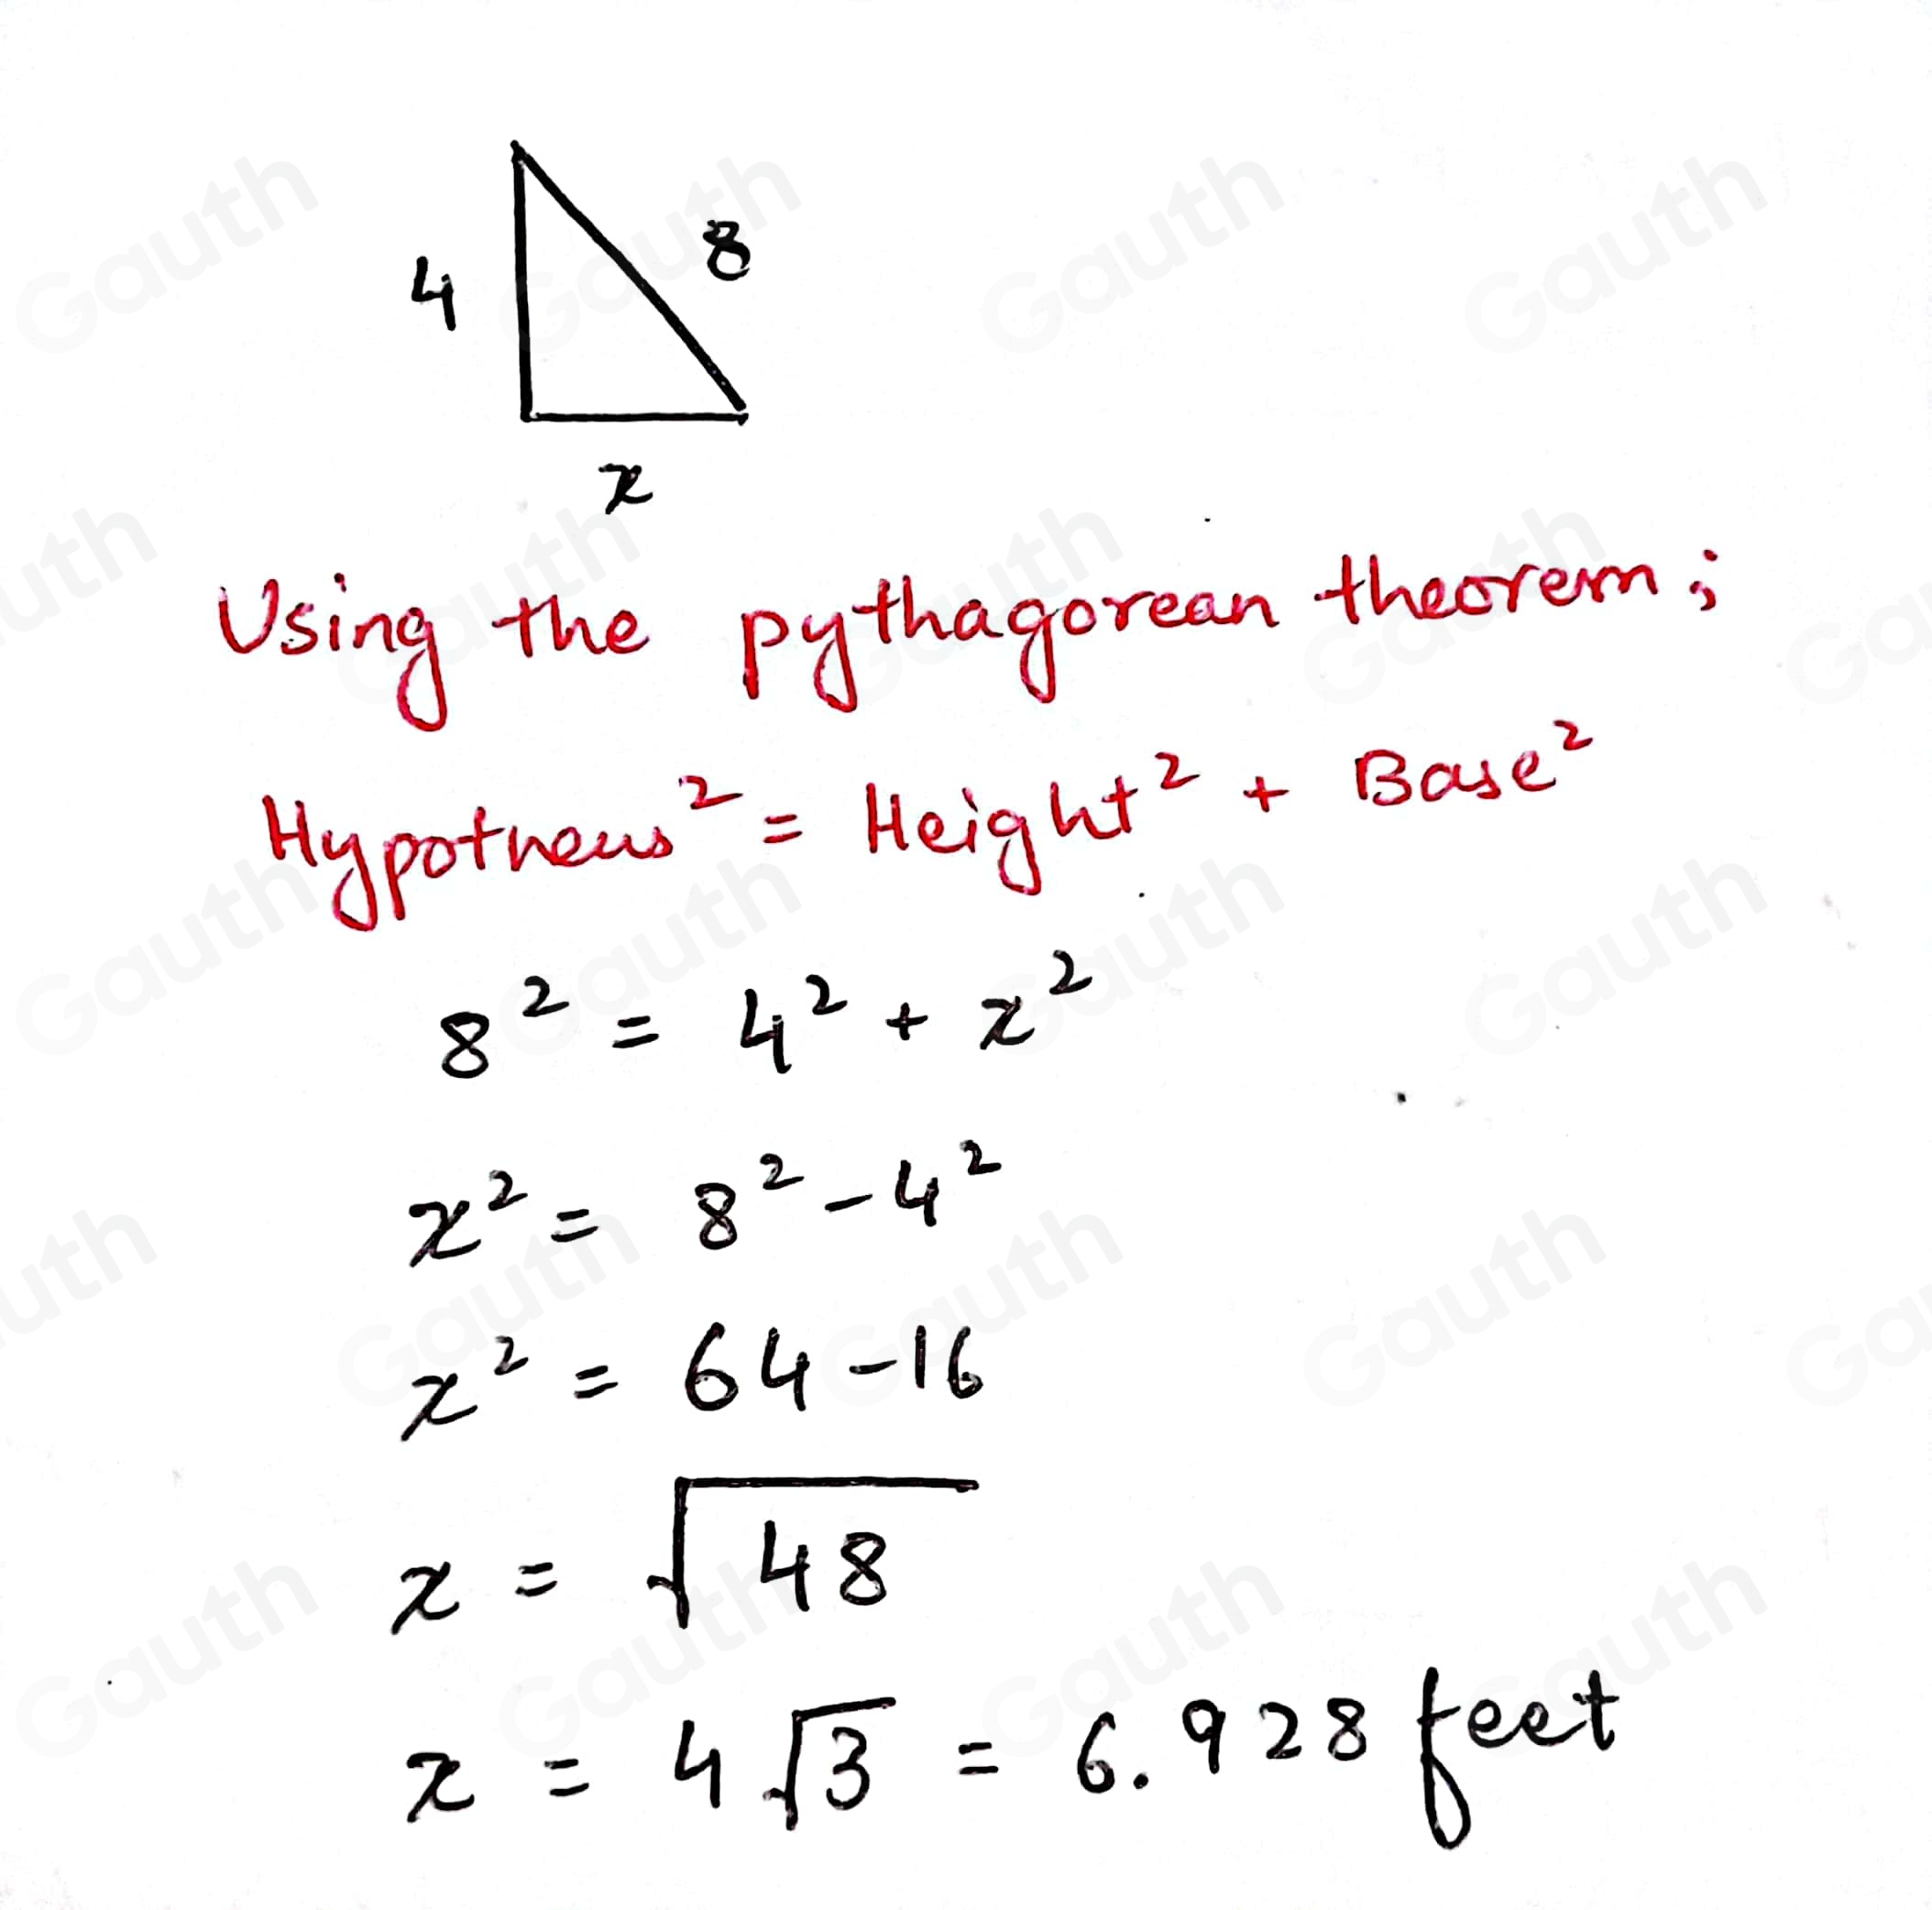 4
8
x
Using the pythagorean theorem;
Hypotneus² = Height² + Base²
8² = 4² + x²
x² = 8² - 4²
x² = 64 - 16
x = √48
x = 4√3 = 6.928 feet
Gauth